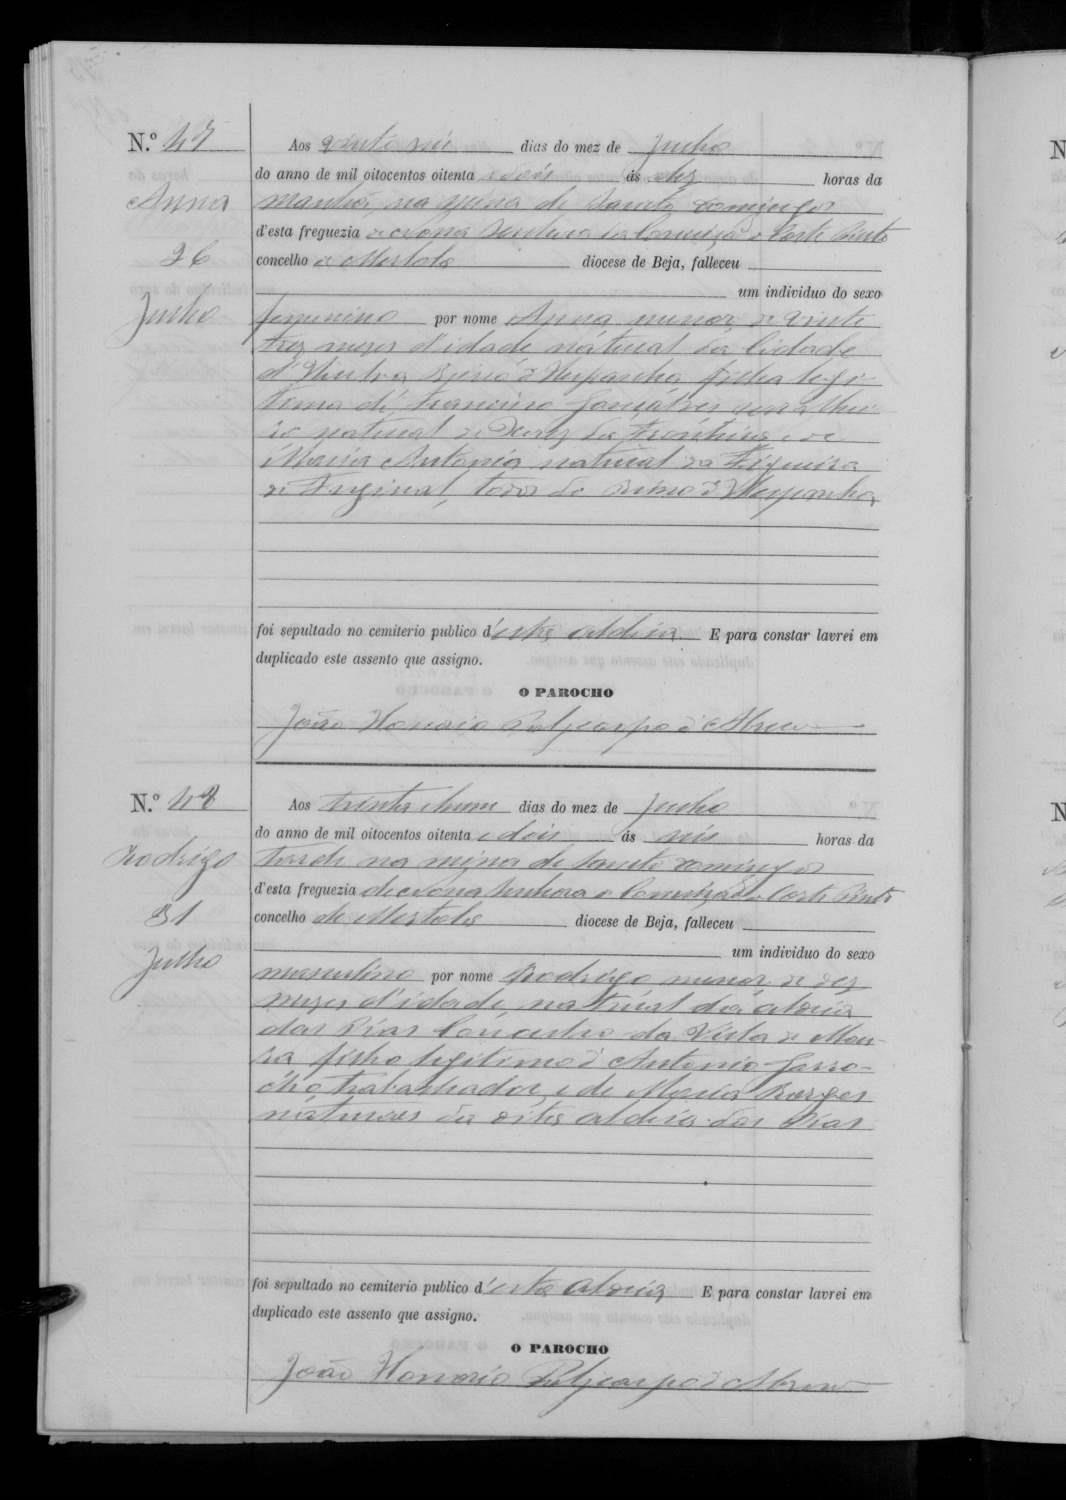 N.º 47
Aos vinte seis dias do mez de Julho
do anno de mil oitocentos oitenta e dois ás dez horas da
Anna
manhã, na mina de Santo Domingos
d'esta freguezia
26
concelho de Mertola diocese de Beja, falleceu
um individuo do sexo
Julho
femenino por nome Anna menor de vinte
trez mezes d'idade natural da Cidade
d'Huelva Reino d'Hespanha, filha legi-
tima de Francisco Gonçalves
natural de da Fronteira e de
Maria Antonia natural da Figueira
todos do Reino d'Hespanha,
foi sepultado no cemiterio publico d'esta aldeia. E para constar lavrei em
duplicado este assento que assigno.
O PAROCHO
João Honorio Polycarpo d'Abreu
N.º 48
Aos trinta e hum dias do mez de Julho
do anno de mil oitocentos oitenta e dois ás seis horas da
Rodrigo
tarde na mina de Santo Domingos
d'esta freguezia de Nossa Senhora da Conceição de Corte Pinto
31
concelho de Mertola diocese de Beja, falleceu
um individuo do sexo
Julho
masculino por nome Rodrigo menor de dez
mezes d'idade, natural da aldeia
das Pias Concelho da Villa de Mou-
ra filho legitimo d'Antonio Garro-
cho trabalhador, e de Maria Borges
naturaes da dita aldeia das Pias
foi sepultado no cemiterio publico d'esta aldeia, E para constar lavrei em
duplicado este assento que assigno.
O PAROCHO
João Honorio Polycarpo d'Abreu